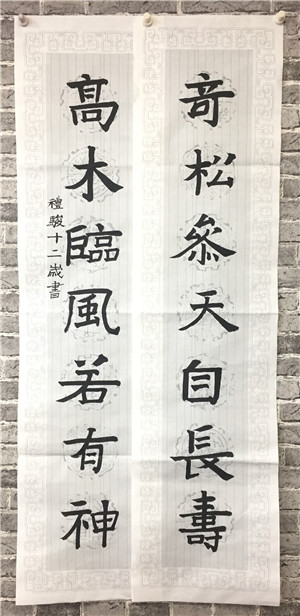 奇松叅天自長壽
高木臨風若有神
禮駿十二歲書